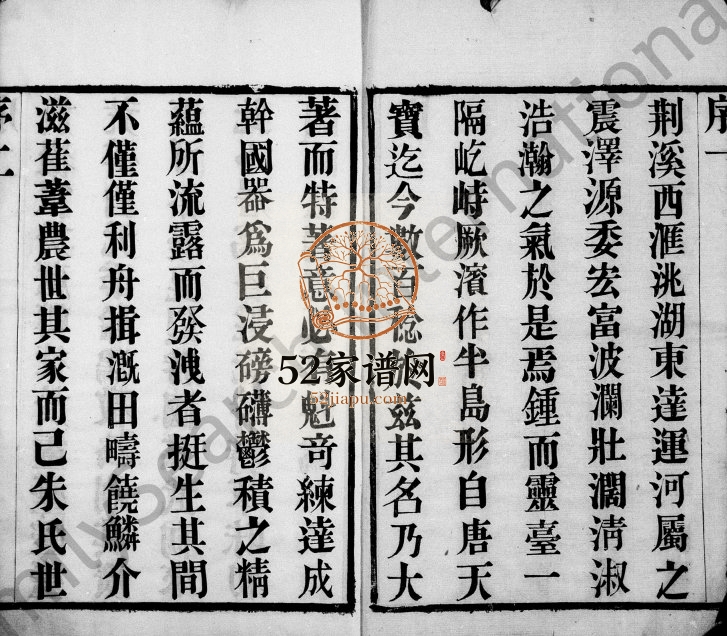 序一
荆溪西滙洮湖東達運河屬之
震澤源委宏富波瀾壯濶淸淑
浩瀚之氣於是焉鍾而靈臺一
隔屹峙厥濱作半島形自唐天
寶迄今數百稔於兹其名乃大
著而特著意必有魁竒練達成
幹國器爲巨浸磅礴鬱積之精
蘊所流露而發洩者挺生其間
不僅僅利舟揖漑田疇饒鱗介
滋萑葦農世其家而己朱氏世
序二
52家谱网
52jiapu.com